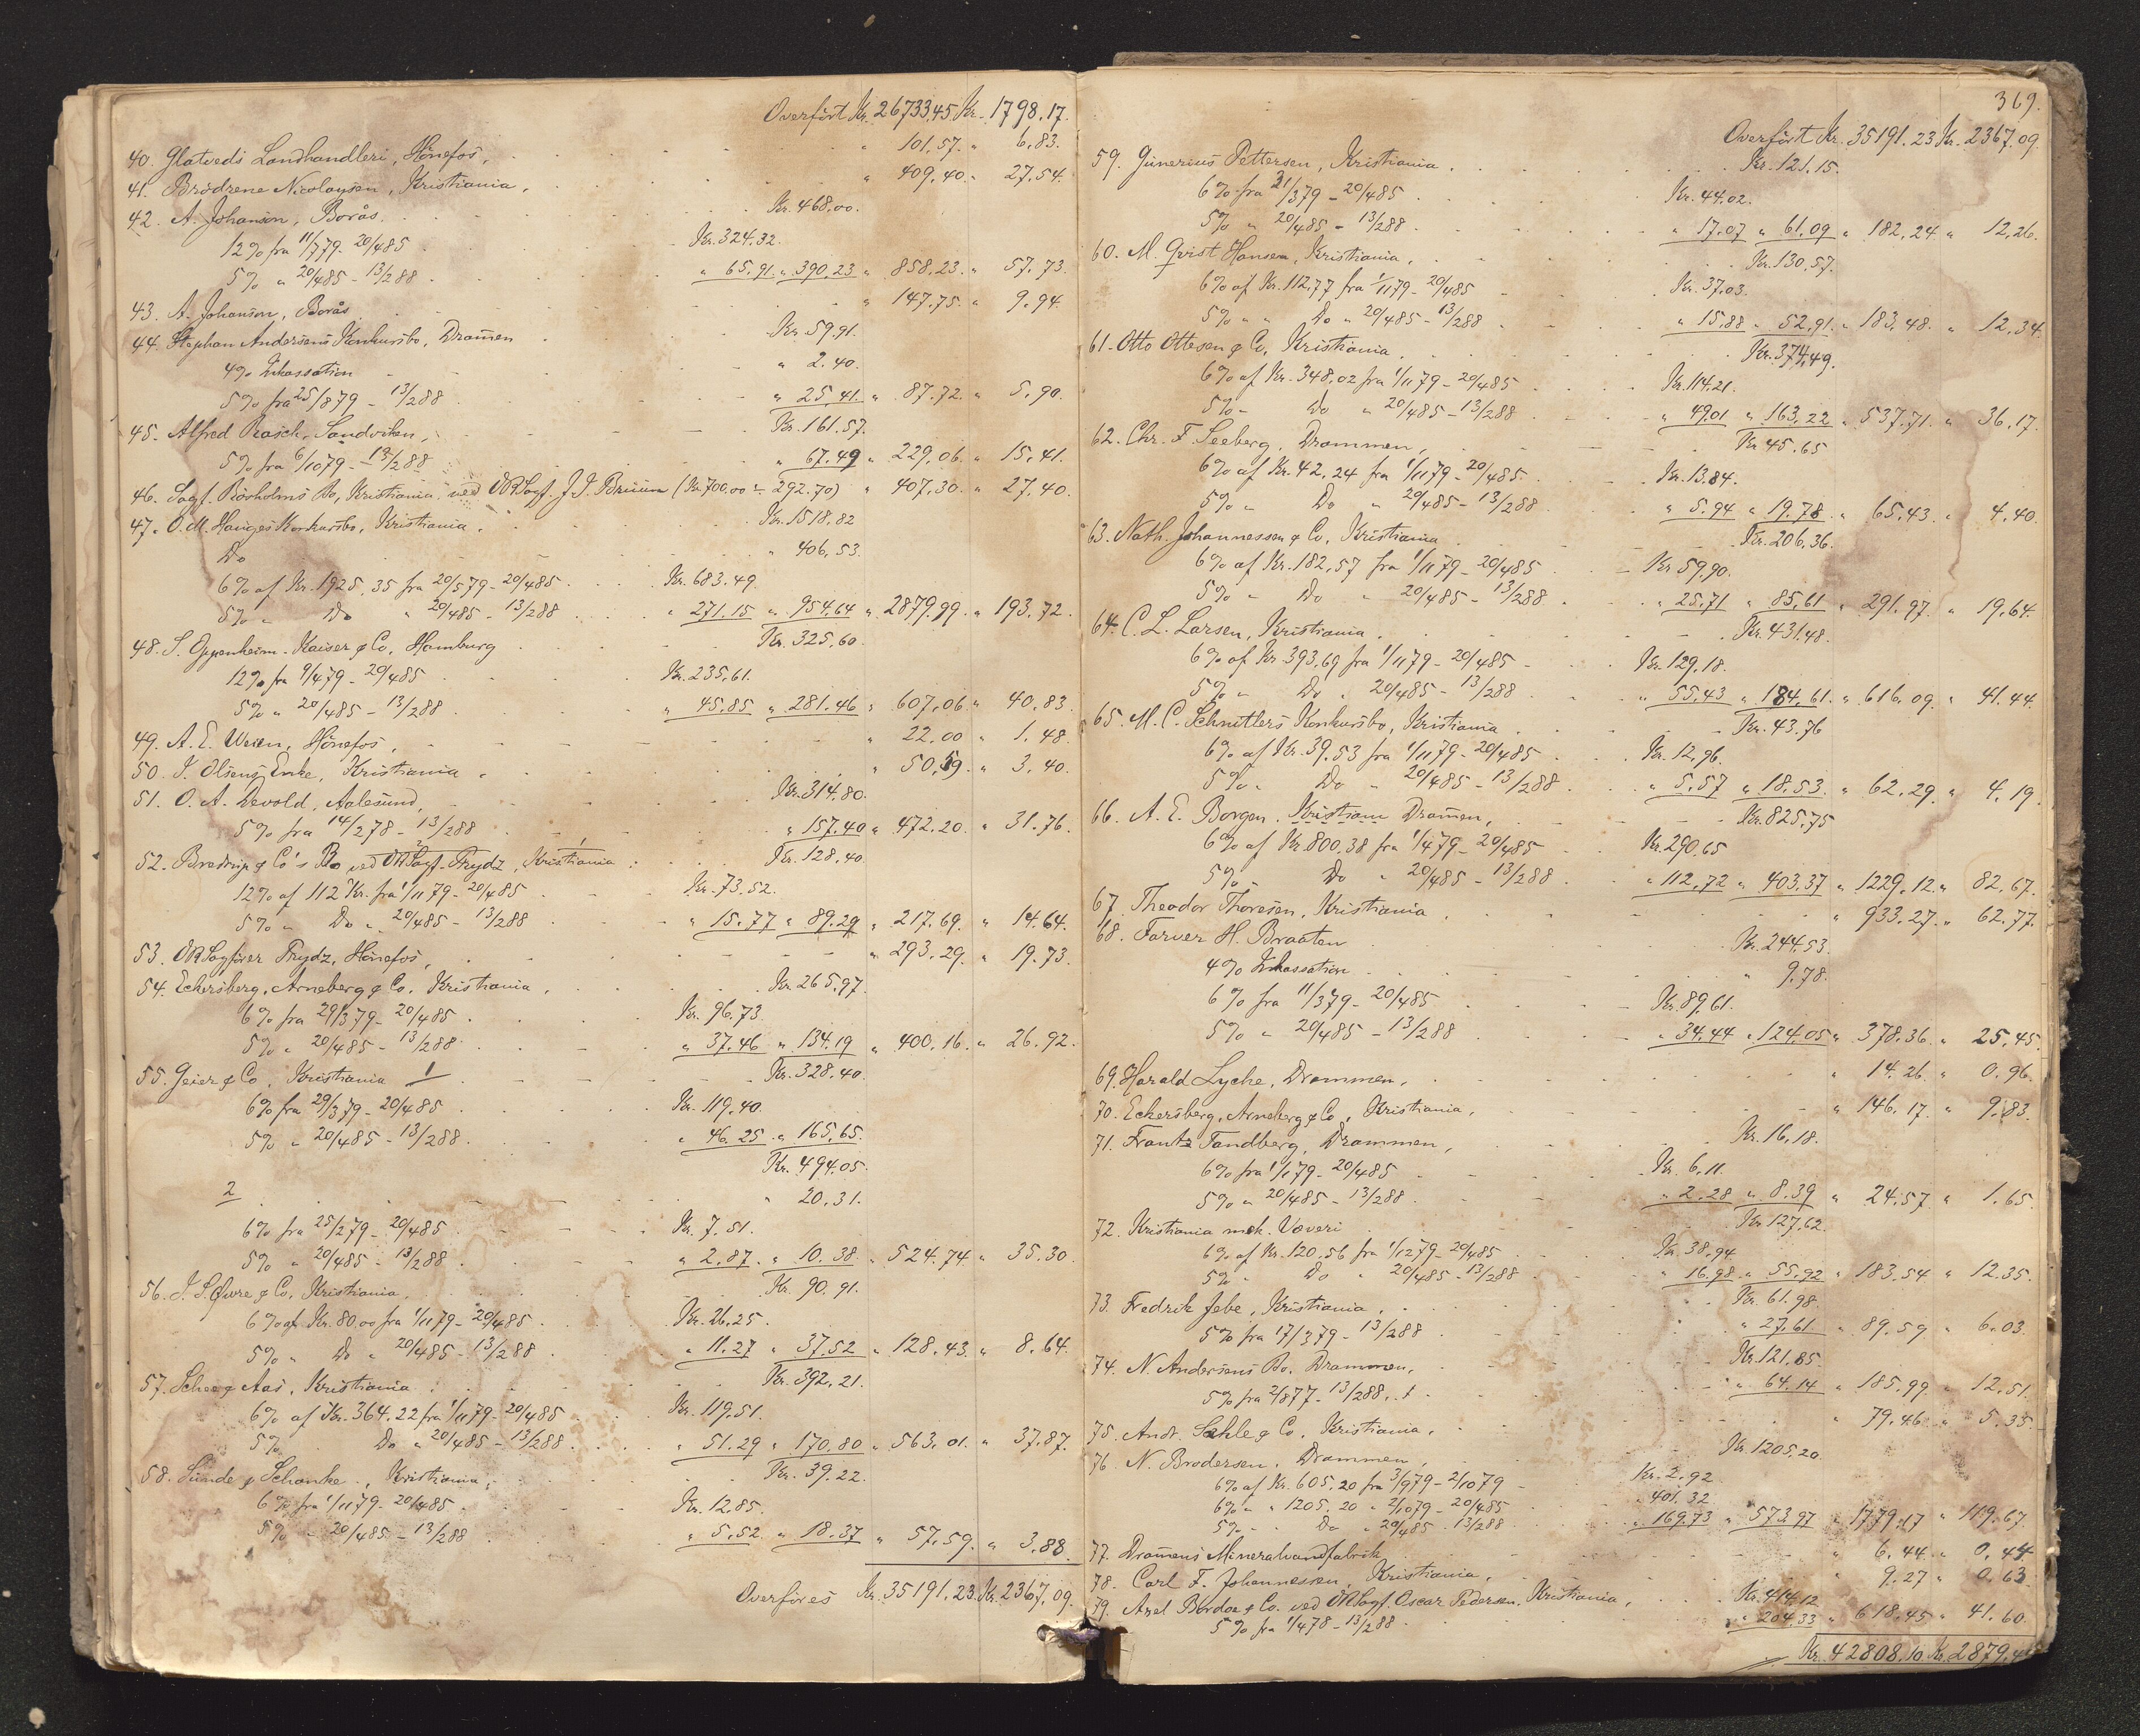 Overført Kr. 26733.45 Kr. 1798.17.
40. Glatveds Landhandleri, Hönefos, " 101,57. " 6,83.
41. Brödrene Nicolaysen, Kristiania, " 409,40. " 27.54.
42. A. Johanson, Borås. Kr. 468,00.
12% fra 11/7 79 - 20/4 85 Kr. 324.32.
5% " 20/4 85 - 13/2 88 " 65.91. " 390,23 " 858,23. " 57.73.
43. A. Johanson, Borås " 147.75. " 9.94.
44. Stephan Andersens Konkursbo, Dram̄en Kr. 59.91.
4% Inkassation " 2.40.
5% fra 25/8 79 - 13/2 88 " 25,41. " 87.72. " 5,90.
45. Alfred Rasch, Sandviken, Kr. 161.57.
5% fra 6/10 79 - 13/2 88 " 67.49 " 229,06. " 15,41.
46. Sagf. Rörholms Bo, Kristiania, ved ORSagf. J. J. Bruun (Kr. 700,00 - 292.70) " 407,30. " 27,40.
47. O. M. Hauges Konkursbo, Kristiania. Kr. 1518,82
Do " 406,53.
6% af Kr. 1925,35 fra 20/5 79 - 20/4 85 Kr. 683.49.
5% " Do " 20/4 85 - 13/2 88 " 271.15 " 954,64 " 2879,99. " 193.72.
48. S. Oppenheim-Kaiser & Co, Hamburg Kr. 325,60.
12% fra 9/4 79 - 20/4 85 Kr. 235,61.
5% " 20/4 85 - 13/2 88 " 45,85 " 281,46 " 607,06. " 40,83.
49. A. E. Weien, Hönefos, " 22,00 " 1,48.
50. J. Olsens Enke, Kristiania " 50,59. " 3,40.
51. O. A. Devold, Aalesund, Kr. 314,80.
5% fra 14/2 78 - 13/2 88 " 157,40 " 472.20. " 31.76.
52. Bredrup & Co's Bo ved ORSagf. Trydz, Kristiania Kr. 128,40.
12% af 112 Kr. fra 1/11 79 - 20/4 85 Kr. 73.52.
5% " Do " 20/4 85 - 13/2 88 " 15.77 " 89.29 " 217.69. " 14.64.
53. ORSagförer Trydz, Hönefos, " 293,29. " 19.73.
54. Eckersberg, Arneberg & Co, Kristiania, Kr. 265,97.
6% fra 29/3 79 - 20/4 85 Kr. 96.73.
5% " 20/4 85 - 13/2 88 " 37.46 " 134.19 " 400.16. " 26.92.
55. Geier & Co, Kristiania 1 Kr. 328.40.
6% fra 29/3 79 - 20/4 85 Kr. 119.40.
5% " 20/4 85 - 13/2 88 " 46.25 " 165,65.
Kr. 494.05.
2 " 20.31.
6% fra 25/2 79 - 20/4 85 Kr. 7.51.
5% " 20/4 85 - 13/2 88 " 2.87 " 10.38 " 524.74 " 35.30
56. J. S. Qure & Co, Kristiania. Kr. 90.91.
6% af Kr. 80,00 fra 1/11 79 - 20/4 85 Kr. 26,25.
5% " Do " 20/4 85 - 13/2 88 " 11.27 " 37.52 " 128.43. " 8.64.
57. Schee & Aas, Kristiania Kr. 392,21.
6% af Kr. 364,22 fra 1/11 79 - 20/4 85 Kr. 119.51.
5% Do " 20/4 85 - 13/2 88 " 51.29 " 170.80 " 563,01. " 37.87.
58. Sunde & Schanke, Kristiania, Kr. 39,22.
6% fra 1/11 79 - 20/4 85 Kr. 12.85.
5% " 20/4 85 - 13/2 88 " 5.52. " 18.37 " 57,59. " 3.88.
Overföres Kr. 35191.23. Kr. 2367,09.
369.
Overført Kr. 35191.23 Kr. 2367.09
59. Gunerius Pettersen, Kristiania. Kr. 121.15.
6% fra 31/3 79 - 20/4 85 Kr. 44.02.
5% " 20/4 85 - 13/2 88 " 17.07 " 61.09 " 182,24 " 12,26.
60. M. Qvist Hansen, Kristiania, Kr. 130,57.
6% af Kr. 112,77 fra 1/11 79 - 20/4 85 Kr. 37.03.
5% " " Do " 20/4 85 - 13/2 88 " 15.88 " 52.91. " 183,48. " 12,34.
61. Otto Ottesen & Co, Kristiania. Kr. 374,49.
6% af Kr. 348,02 fra 1/11 79 - 20/4 85 Kr. 114.21.
5% " Do " 20/4 85 - 13/2 88 " 49.01 " 163,22 " 537.71. " 36,17.
62. Chr. F. Seeberg, Drammen, Kr. 45.65
6% af Kr. 42,24 fra 1/11 79 - 20/4 85. Kr. 13.84.
5% " Do " 20/4 85 - 13/2 88 " 5.94 " 19.78. " 65.43. " 4,40.
63. Nath. Johannessen & Co, Kristiania Kr. 206,36.
6% af Kr. 182,57 fra 1/11 79 - 20/4 85 Kr. 59.90.
5% " Do " 20/4 85 - 13/2 88 " 25,71 " 85,61 " 291.97. " 19,64.
64. C. L. Larsen, Kristiania. Kr. 431,48.
6% af Kr. 393,69 fra 1/11 79 - 20/4 85 Kr. 129,18.
5% " Do " 20/4 85 - 13/2 88 " 55.43 " 184,61. " 616,09. " 41.44.
65. M. C. Schnitlers Konkursbo, Kristiania Kr. 43.76
6% af Kr. 39,53 fra 1/11 79 - 20/4 85 Kr. 12,96.
5% " Do " 20/4 85 - 13/2 88 " 5,57 " 18,53. " 62.29. " 4,19
66. A. E. Borgen, Kristiania Dram̄en, Kr. 825,75
6% af Kr. 800,38 fra 1/4 79 - 20/4 85 Kr. 290,65
5% " Do " 20/4 85 - 13/2 88 " 112,72 " 403,37 " 1229,12. " 82,67.
67. Theodor Thoresen, Kristiania " 933.27. " 62.77.
68. Farver H. Braaten Kr. 244.53.
4% Inkassation " 9.78.
6% fra 11/3 79 - 20/4 85 Kr. 89.61.
5% " 20/4 85 - 13/2 88 " 34,44 " 124,05 " 378,36. " 25,45.
69. Harald Lyche, Drammen, " 14.26. " 0.96.
70. Eckersberg, Arneberg & Co, Kristiania, " 146.17. " 9.83.
71. Frantz Tandberg, Drammen, Kr. 16,18.
6% fra 1/1 79 - 20/4 85 Kr. 6,11.
5% " 20/4 85 - 13/2 88 " 2.28 " 8.39 " 24.57 " 1.65.
72. Kristiania mek. Væveri Kr. 127,62.
6% af Kr. 120,56 fra 1/12 79 - 20/4 85 Kr. 38,94
5% " Do " 20/4 85 - 13/2 88 " 16,98 " 55,92 " 183,54 " 12.35.
73. Fredrik Jebe, Kristiania, Kr. 61,98.
5% fra 17/3 79 - 13/2 88 " 27.61 " 89,59 " 6,03.
74. N. Andersens Bo, Drammen, Kr. 121,85.
5% fra 2/8 77 - 13/2 88 " 64.14 " 185.99. " 12.51.
75. Andr. Sahle & Co, Kristiania, " 79,46 " 5.35.
76. N. Brodersen, Drammen, Kr. 1205,20.
6% af Kr. 605,20 fra 3/9 79 - 2/10 79 Kr. 2,92
6% " " 1205,20 " 2/10 79 - 20/4 85 " 401,32
5% " Do " 20/4 85 - 13/2 88 " 169.73 " 573,97 " 1779.17 " 119.67.
77. Dram̄ens Mineralvandfabrik " 6,44 " 0,44
78. Carl F. Johannessen, Kristiania, " 9.27 " 0,63
79. Axel Bordoe & Co. ved ORSagf. Oscar Pedersen, Kristiania, Kr. 414.12
5% fra 1/4 78 - 13/2 88 " 204.33 " 618.45 " 41.60.
Kr. 42808.10 Kr. 2879,4